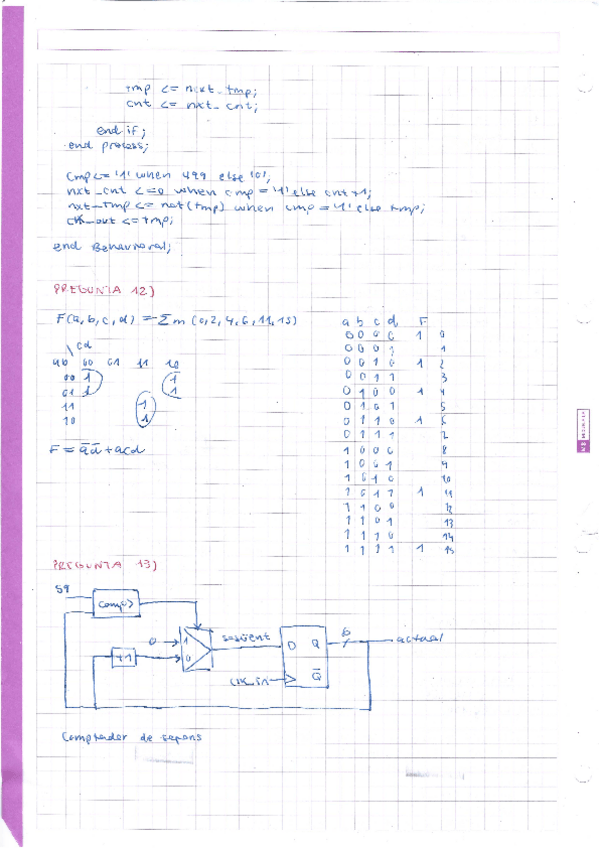 tmp <= nxt_tmp;
cnt <= nxt_cnt;
end if;
end process;
cmp <= '1' when 499 else '0';
nxt_cnt <= 0 when cmp = '1' else cnt+1;
nxt_tmp <= not(tmp) when cmp = '1' else tmp;
clk_out <= tmp;
end Behavioral;
PREGUNTA 12)
F(a,b,c,d) = Σm (0,2,4,6,11,15)
cd
ab 00 01 11 10
00 1 1
01 1 1
11 1
10 1
F = a̅d̅ + acd
a b c d F
0 0 0 0 1 0
0 0 0 1 1
0 0 1 0 1 2
0 0 1 1 3
0 1 0 0 1 4
0 1 0 1 5
0 1 1 0 1 6
0 1 1 1 7
1 0 0 0 8
1 0 0 1 9
1 0 1 0 10
1 0 1 1 1 11
1 1 0 0 12
1 1 0 1 13
1 1 1 0 14
1 1 1 1 1 15
PREGUNTA 13)
59
comp
0 1 següent D Q 6 actual
+1 0
clk_in Q̅
Comptador de segons